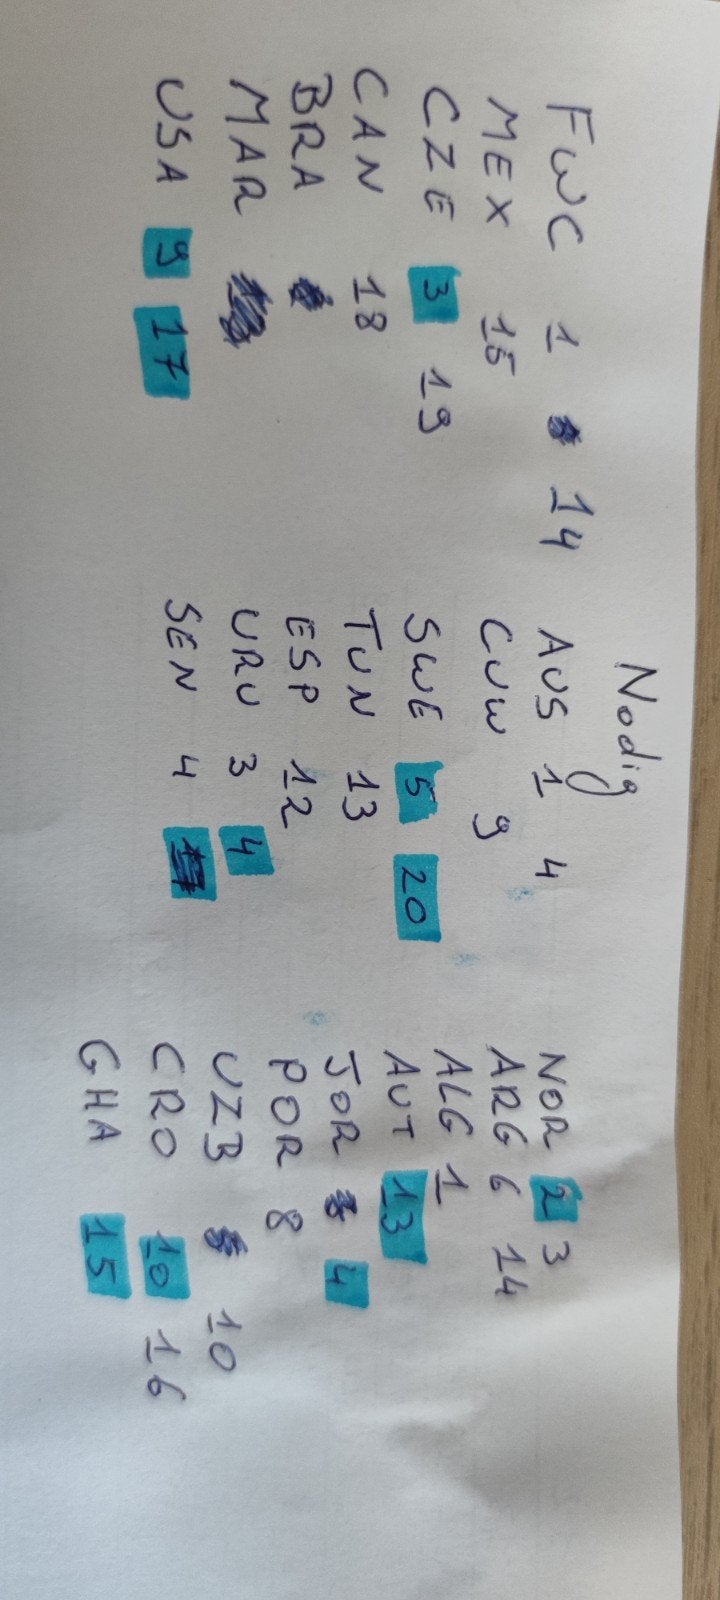 Nodig
FWC 1 14
MEX 15
CZE 3 19
CAN 18
BRA
MAR
USA 9 17
AUS 1 4
CUW 9
SWE 5 20
TUN 13
ESP 12
URU 3 4
SEN 4
NOR 2 3
ARG 6 14
ALG 1
AUT 13
JOR 4
POR 8
UZB 10
CRO 10 16
GHA 15